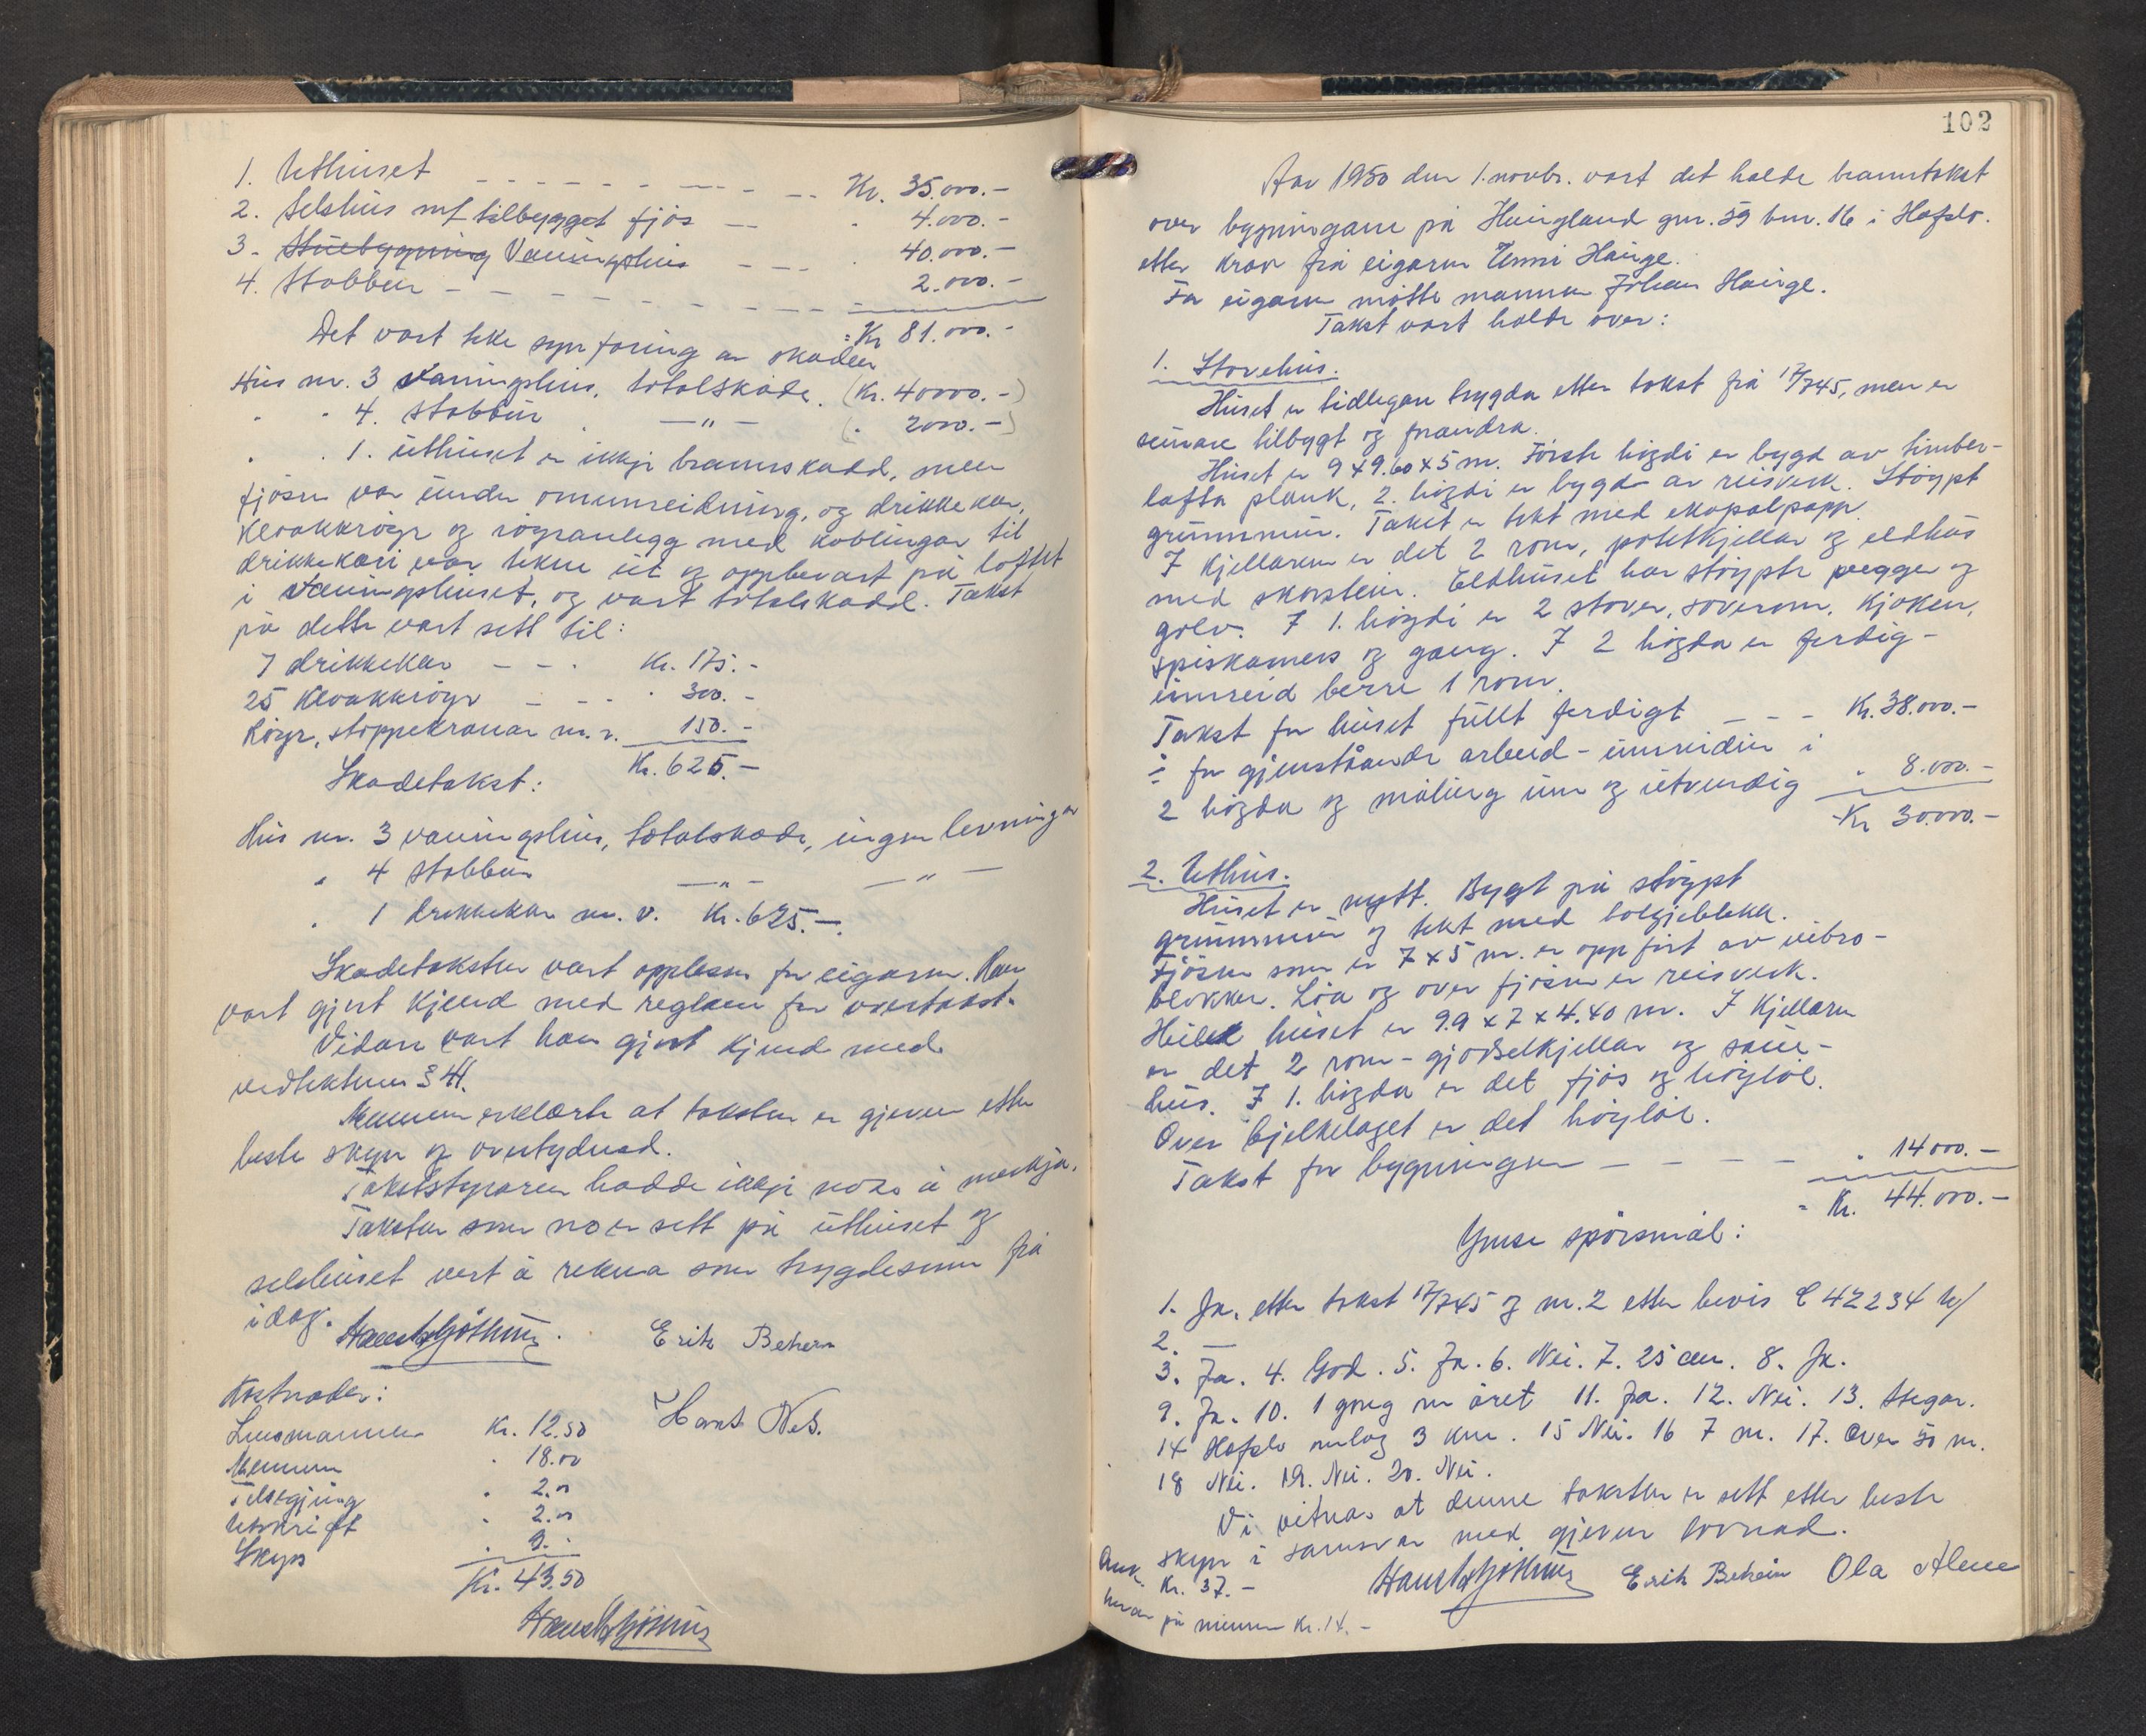 1. Uthuset - - - - - - - - - - Kr. 35.000.-
2. Selshus mf tilbygget fjös - - " 4.000.-
3. Stuebygning Vaaningshus - - - " 40.000.-
4. Stabbur - - - - - - - - - 2.000.-
= Kr 81.000.-
Det vart teke synfaring av skaden
Hus nr. 3 Vaaningshus, totalskade. (Kr. 40000.-)
" " 4. Stabbur - " - ( " 2000.-)
" " 1. uthuset er ikkje brannskadd, men
fjösen var under omunreidning, og drikkekar,
kloakkröyr og röyranlegg med koblingar til
drikkekari var tekne ut og oppbevart på loftet
i Vaaningshuset, og vart totalskadd. Takst
på dette vart sett til:
7 drikkekar - - - Kr. 175.-
25 Kloakkröyr - - - " 300.-
Röyr, stoppekranar m.v. 150.-
Kr. 625.-
Skadetakst:
Hus nr. 3 vaaningshus, totalskade, ingen levningar
" 4 Stabbur - " - - " -
" 1 drikkekar m.v. Kr. 625.-
Skadetaksten vart opplesen for eigaren. Han
vart gjort kjend med reglane for overtakst.
Vidare vart han gjort kjend med
vedtektene § 41.
Mennene erklærte at taksten er gjeven etter
beste skyn og overtydnad.
Takststyraren hadde ikkje noko å merkja.
Taksten som no er sett på uthuset og
selshuset vert å rekna som trygdesum frå
idag.
Erik Beheim
Hans Nes.
Kostnader:
Lensmannen Kr. 12.50
Mennene " 18.00
Tilsegjing " 2.00
Utskrift " 2.00
Skyss " 9.-
Kr. 43.50
102
Aar 1950 den 1. novbr. vart det halde branntakst
over bygningane på Haugland gnr. 59 bnr. 16 i Hafslo.
etter krav frå eigaren Unni Hauge.
For eigaren møtte mannen Johan Hauge.
Takst vart halde over:
1. Stovehus.
Huset er tidlegare trygda etter takst frå 17/7 45, men er
seinare tilbygt og forandra.
Huset er 9 x 9.60 x 5 m. Förste högdi er bygd av timber-
lafta plank, 2. högdi er bygd av reisverk. Stöypt
grunnmur. Taket er tekt med ekapalpapp.
I Kjellaren er det 2 rom, potetkjellar og eldhus
med skorstein. Eldhuset har stöypte vegger og
golv. I 1. högdi er 2 stover, soverom, kjöken,
spiskamers og gang. I 2 högda er ferdig-
innreid berre 1 rom.
Takst for huset fullt ferdigt - - - Kr. 38.000.-
÷ for gjenståande arbeid - innreiding i
2 högda og måling inn og utvendig " 8.000.-
Kr 30.000.-
2. Uthus.
Huset er nytt. Bygt på stöypt
grunnmur og tekt med bølgjeblekk.
Fjösen som er 7 x 5 m. er oppfört av vibro-
blokker. Löa og over fjösen er reisverk.
Heile huset er 9.9 x 7 x 4.40 m. I Kjellaren
er det 2 rom - gjödselkjellar og saue-
hus. I 1. högda er det fjös og höyloe.
Over bjelkelaget er det höyloe.
Takst for bygningen - - - - " 14000.-
= Kr. 44.000.-
Ymse spörsmål:
1. Ja, etter takst 17/7 45 og nr. 2 etter bevis C 42234
2. -
3. Ja. 4. God. 5. Ja. 6. Nei. 7. 25 cm. 8. Ja.
9. Ja. 10. 1 gong um året 11. Ja. 12. Nei. 13. Stegar.
14 Hafslo 3 km. 15 Nei. 16 7 m. 17. Over 50 m.
18 Nei. 19. Nei. 20. Nei.
Vi vitnar at denne taksten er sett etter beste
skyn i samsvar med gjeven lovnad.
Erik Beheim Ola Alme
Kr. 37.-
herav på mennene Kr. 14.-